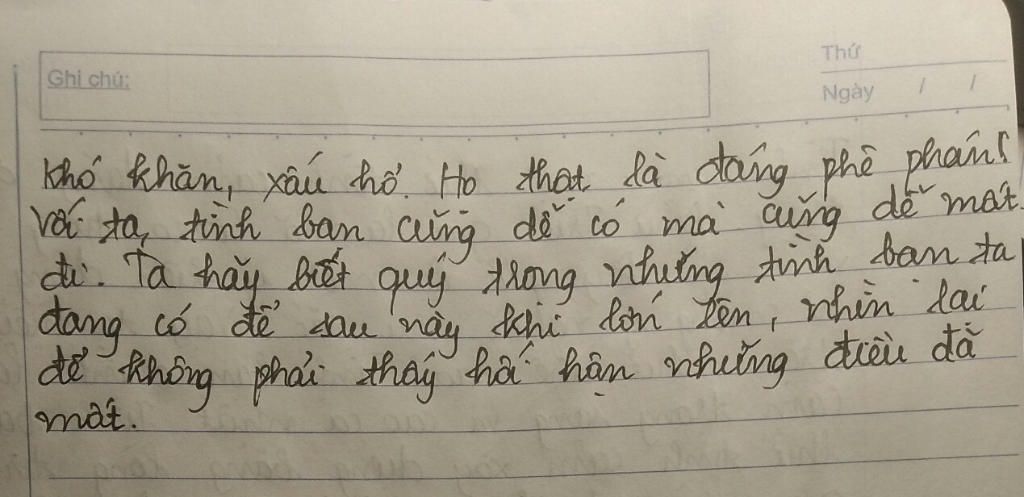 Thứ
Ghi chú:
Ngày / /
khó khăn, xấu hổ. Họ thật là đáng phê phán!
Với ta, tình bạn cũng dễ có mà cũng dễ mất
đi. Ta hãy biết quý trọng những tình bạn ta
đang có để sau này khi lớn lên, nhìn lại
để không phải thấy hối hận những điều đã
mất.